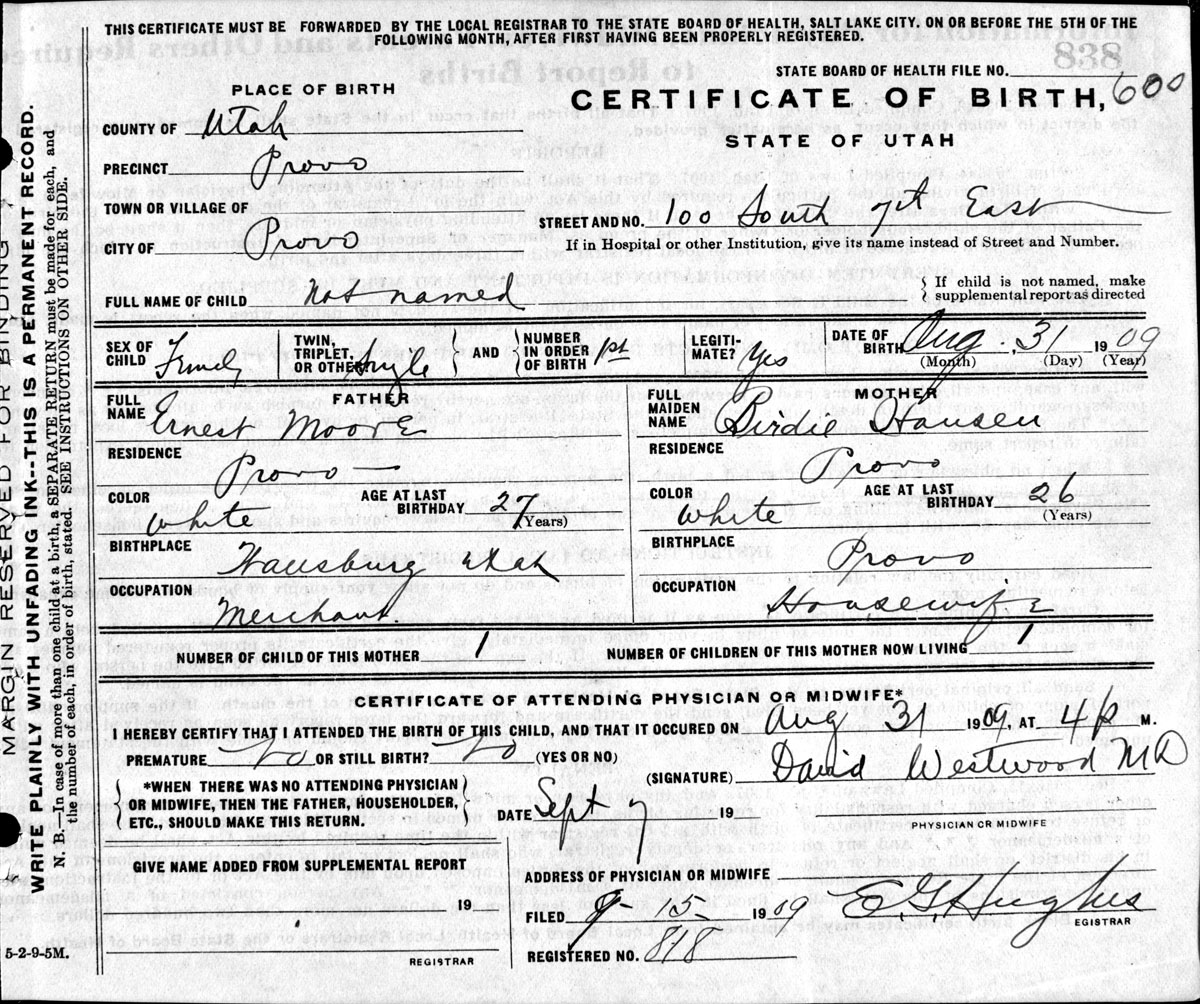 THIS CERTIFICATE MUST BE FORWARDED BY THE LOCAL REGISTRAR TO THE STATE BOARD OF HEALTH, SALT LAKE CITY. ON OR BEFORE THE 5TH OF THE
FOLLOWING MONTH, AFTER FIRST HAVING BEEN PROPERLY REGISTERED.
838
STATE BOARD OF HEALTH FILE NO.
PLACE OF BIRTH
CERTIFICATE OF BIRTH, 600
COUNTY OF Utah
STATE OF UTAH
PRECINCT Provo
TOWN OR VILLAGE OF
STREET AND NO. 100 South 7st East
CITY OF Provo
If in Hospital or other Institution, give its name instead of Street and Number.
FULL NAME OF CHILD Not named
If child is not named, make
supplemental report as directed
SEX OF CHILD
TWIN, TRIPLET, OR OTHER Single AND NUMBER IN ORDER OF BIRTH 1st
LEGITI-MATE? Yes
DATE OF BIRTH Aug. 31 1909
(Month) (Day) (Year)
FATHER
FULL NAME Ernest Moore
RESIDENCE Provo
COLOR White
AGE AT LAST BIRTHDAY 27 (Years)
BIRTHPLACE Utah
OCCUPATION Merchant.
MOTHER
FULL MAIDEN NAME Birdie Hansen
RESIDENCE Provo
COLOR White
AGE AT LAST BIRTHDAY 26 (Years)
BIRTHPLACE Provo
OCCUPATION Housewife
NUMBER OF CHILD OF THIS MOTHER 1
NUMBER OF CHILDREN OF THIS MOTHER NOW LIVING 1
CERTIFICATE OF ATTENDING PHYSICIAN OR MIDWIFE*
I HEREBY CERTIFY THAT I ATTENDED THE BIRTH OF THIS CHILD, AND THAT IT OCCURED ON Aug 31 1909, AT 4 P M.
PREMATURE No OR STILL BIRTH? No (YES OR NO)
(SIGNATURE) David Westwood MD
PHYSICIAN OR MIDWIFE
*WHEN THERE WAS NO ATTENDING PHYSICIAN
OR MIDWIFE, THEN THE FATHER, HOUSEHOLDER,
ETC., SHOULD MAKE THIS RETURN.
DATE Sept 7 19
GIVEN NAME ADDED FROM SUPPLEMENTAL REPORT
19
REGISTRAR
ADDRESS OF PHYSICIAN OR MIDWIFE
FILED 9-15- 1909 E G Hughes
EGISTRAR
REGISTERED NO. 818
5-2-9-5M.
MARGIN RESERVED FOR BINDING
WRITE PLAINLY WITH UNFADING INK--THIS IS A PERMANENT RECORD.
N. B.—In case of more than one child at a birth, a SEPARATE RETURN must be made for each, and
the number of each, in order of birth, stated. SEE INSTRUCTIONS ON OTHER SIDE.